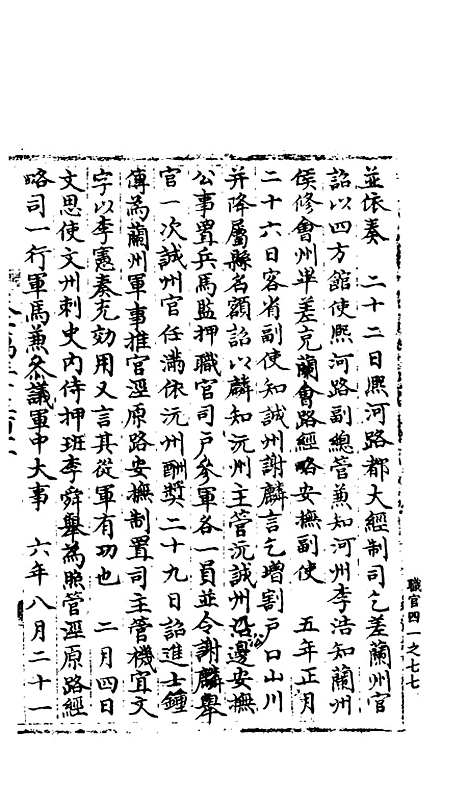 並依奏　二十二日熙河路都大經制司乞差蘭州官
詔以四方館使熙河路副總管兼知河州李浩知蘭州
俟修會州畢差充蘭會路經略安撫副使　五年正月
二十六日客省副使知誠州謝麟言乞增割戶口山川
并降屬縣名額詔以麟知沅州主管沅誠州沿邊安撫
公事置兵馬監押職官司戶參軍各一員並令謝麟舉
官一次誠州官任滿依沅州酬獎二十九日詔進士鍾
傳為蘭州軍事推官涇原路安撫制置司主管機宜文
字以李憲奏充効用又言其從軍有功也　二月四日
文思使文州刺史內侍押班李舜舉為照管涇原路經
略司一行軍馬兼參議軍中大事　六年八月二十一
職官四一之七七